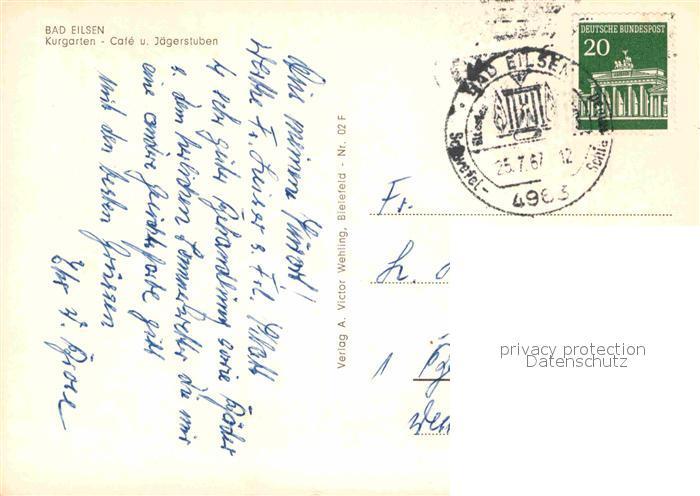 BAD EILSEN
Kurgarten - Café u. Jägerstuben
Aus meinem Kurort!
Werthe Fr. Kaiser u. Frl.
sehr gute Behandlung sowie Bäder
u. dem herrlichen Sommerwetter die mir
eine andere Gesichtsfarbe gibt
mit den besten Grüssen
Ihr W.
Verlag A. Victor Wehling, Bielefeld - Nr. 02 F
DEUTSCHE BUNDESPOST
20
BAD EILSEN
Schwefel-
25.7.67 12
4963
Fr.
1
privacy protection
Datenschutz